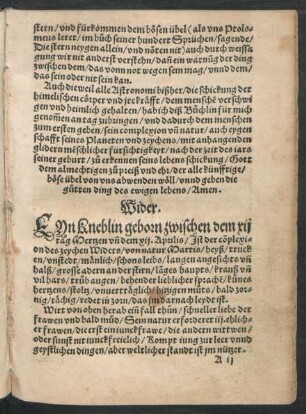 stern / vnd fürkommen dem bösen übel (als vns Ptolo-
meus leret / im bůch seiner hundert Sprüchen / sagende /
Die stern neygen allein / vnd nöten nit) auch durch weissa
gung wir nit anderst verstehn / dañ ein warnūg der ding
zwischen dem / das vonn not wegen sein mag / vnnd dem /
das sein oder nit sein kan.
Auch dieweil alle Astronomi bißher / die schickung der
himelischen cörper vnd jre kräfft / dem menschē verschwi
gen vnd heimlich gehalten / hab ich diß Büchlin für mich
genomen an tag zübringen / vnd dadurch dem menschen
zum ersten geben / sein complexion vñ natur / auch eygen
schafft seines Planeten vnd zeychens / mit anhangenden
glidern möschlicher fürsichtigkeyt / nach der zeit des iars
seiner geburt / zů erkennen seins lebens schickung / Gott
dem almechtigen zů preiß vnd ehr / der alle künfftige /
böse übel von vns abwenden wöll / vnnd geben die
gůtten ding des ewigen lebens / Amen.
Wider.
EYn Kneblin geborn zwischen dem xij
tag Mertzen vñ dem xij. Aprilis / Ist der cōplexy-
on des zeychen Widers / von natur Martis / heyß / trucken
/ vnstedt / mänlich / schons leibs / langen angesichts vñ
halß / grosse adern an der stern / läges haupts / krauß vñ
vil hars / trüb augen / behender lieblicher sprach / künes
hertzens / stoltz / vnuerträglich / hitzigen můts / bald zor-
nig / rächig / redet in zorn / das jm darnach leydt ist.
Wirt von oben herab ein fall thůn / schneller liebe der
frawen vnd bald müd / Sein natur erfordert ee iij. ehlich-
er frawen / die erst ein iunckfrawe / die andern wittwen /
oder sunst nit iunckfreielich / Kompt iung zur leer vnnd
geystlichen dingen / aber weltlicher standt ist jm nützer.
A ij